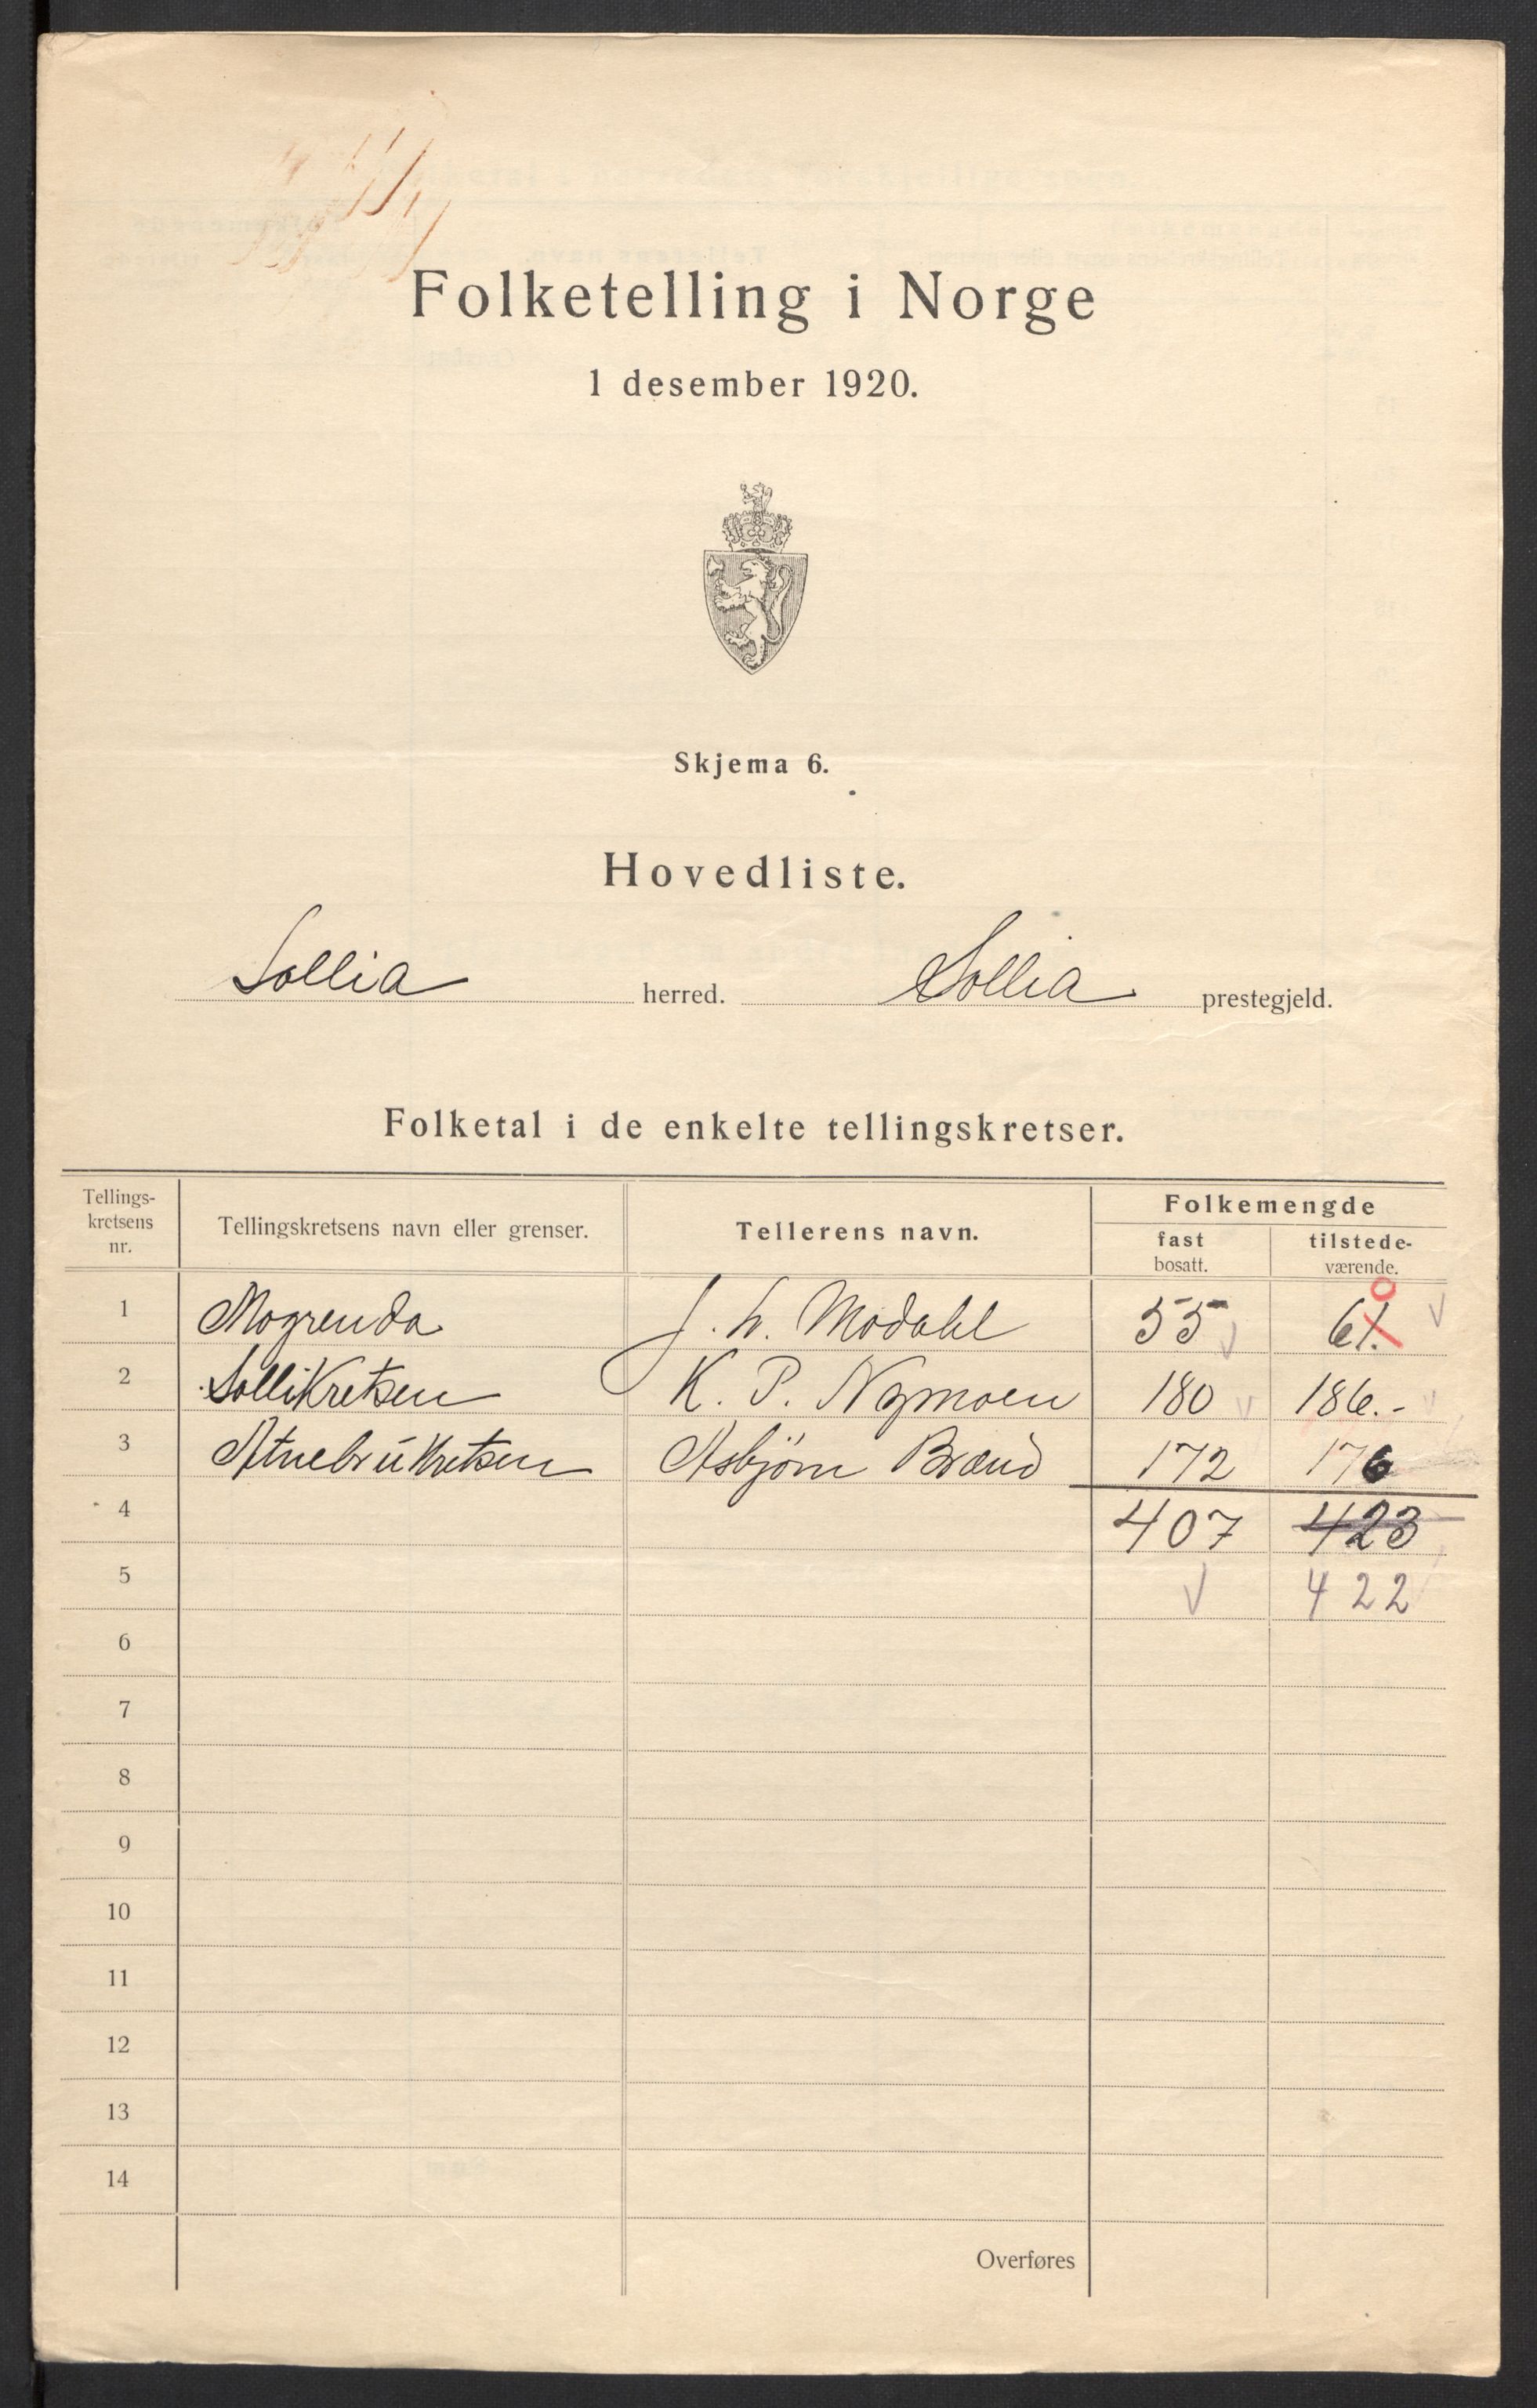 Folketelling i Norge
1 desember 1920.
Skjema 6.
Hovedliste.
Sollia herred. Sollia prestegjeld.
Folketal i de enkelte tellingskretser.
Tellings-
kretsens
nr.
Tellingskretsens navn eller grenser.
Tellerens navn.
Folkemengde
fast
bosatt.
tilstede-
værende.
1 Mogrenda J. L. Modahl 55 61. 0
2 Sollikretsen K. P. Nymoen 180 186.-
3 Atnebrukretsen Asbjørn Brænd 172 176
4 407 423
5 422
6
7
8
9
10
11
12
13
14
Overføres